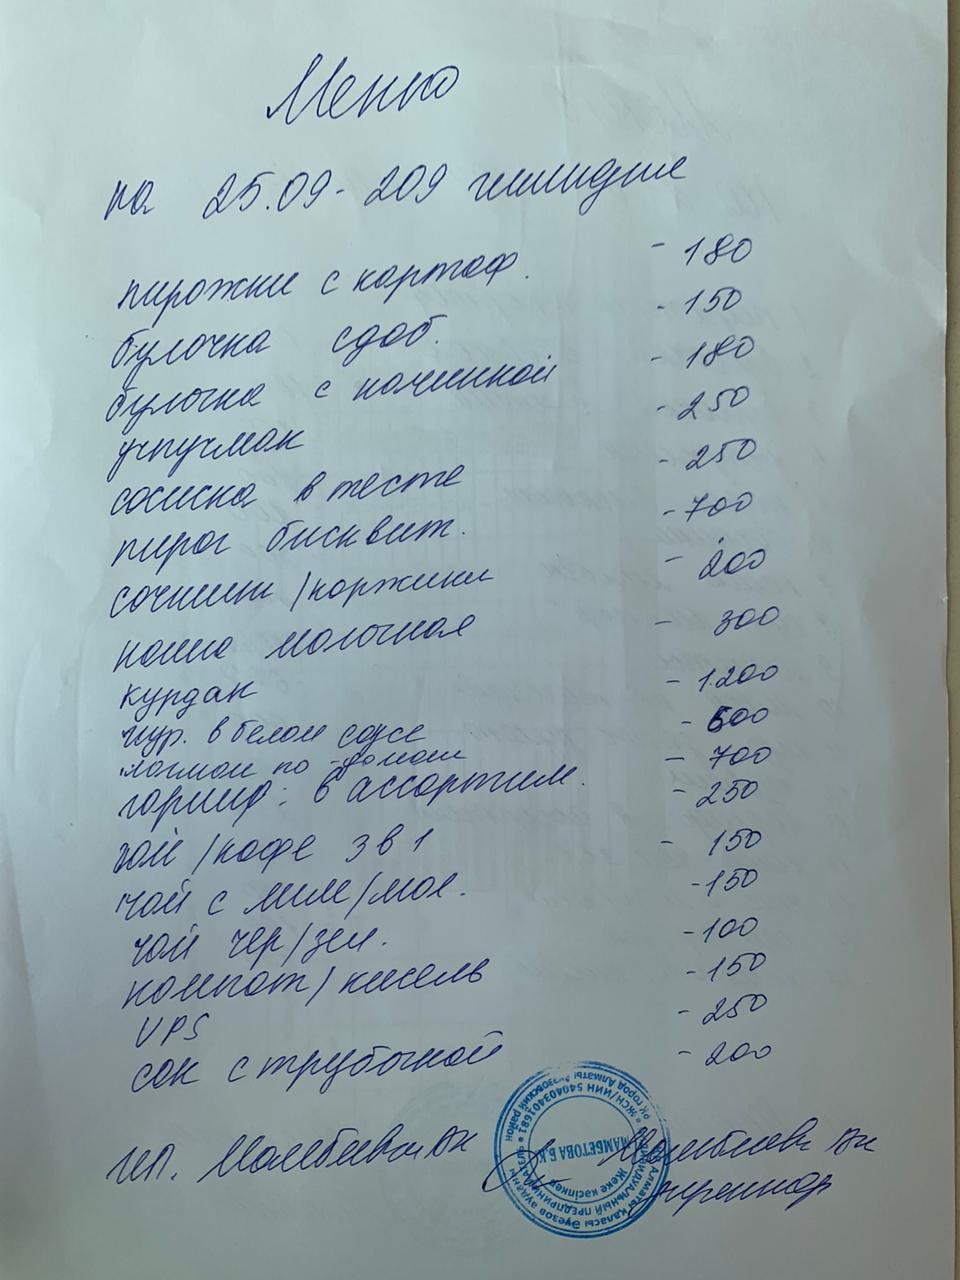 Меню
на 25.09 - 209 гимназия
пирожки с картоф. - 180
булочка сдоб. - 150
булочка с начинкой - 180
учпучмак - 250
сосиска в тесте - 250
пирог бисквит. - 700
сочники / коржики - 200
каша молочная - 300
курдак - 1200
кур. в белом соусе - 600
лагман по-домаш - 700
гарнир: в ассортим. - 250
чай / кофе 3 в 1 - 150
чай с лим/мол. - 150
чай чер/зел. - 100
компот / кисель - 150
UPS - 250
сок с трубочкой - 200
ип. Мамбетова
МАМБЕТОВА Б.К.
Жеке кәсіпкер
ЖСН/ИИН 540403401681
ИНДИВИДУАЛЬНЫЙ ПРЕДПРИНИМАТЕЛЬ
Алматы қаласы Әуезов ауданы
город Алматы Ауэзовский район